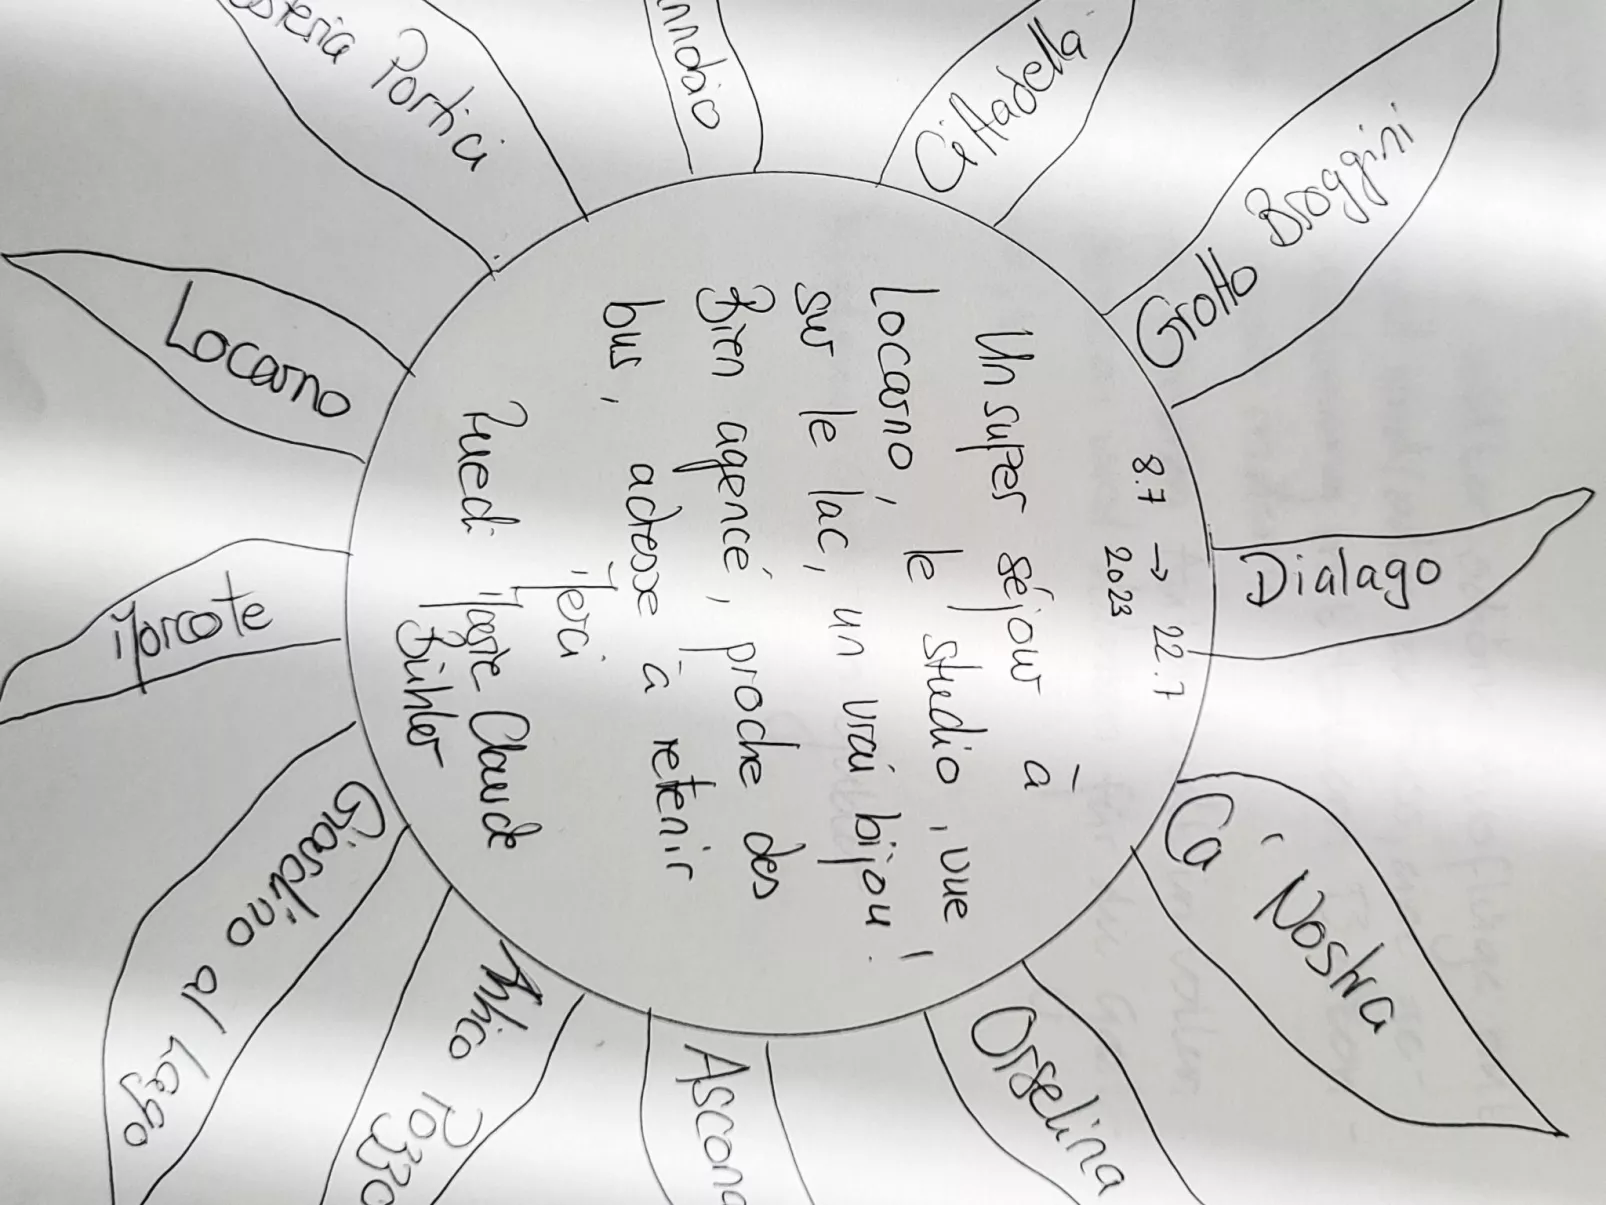 8.7 → 22.7
2023
Un super séjour à
Locarno, le studio, vue
sur le lac, un vrai bijou!
Bien agencé, proche des
bus, adresse à retenir
Merci
Ruedi Marie Claude
Bühler
Dialago
Ca' Nostra
Orselina
Ascona
Antico Pozzo
Giardino al Lago
Morcote
Locarno
Portici
Cittadella
Grotto Broggini